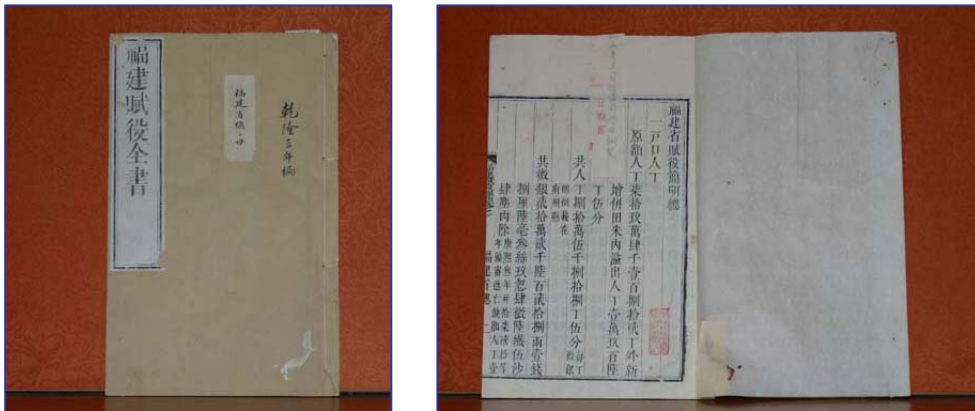 福建賦役全書
乾隆三年編
福建省總一冊
福建省賦役簡明總
一戶口人丁
原額人丁柒拾玖萬肆千壹百捌拾貳丁外新
增併田米內溢出人丁壹萬玖百陸
丁伍分
共人丁捌拾萬伍千捌拾捌丁伍分
共徵銀貳拾萬貳千陸百貳拾捌兩壹錢
捌厘陸毫叁絲玖忽肆微陸纖伍沙
肆塵內除
福建省總